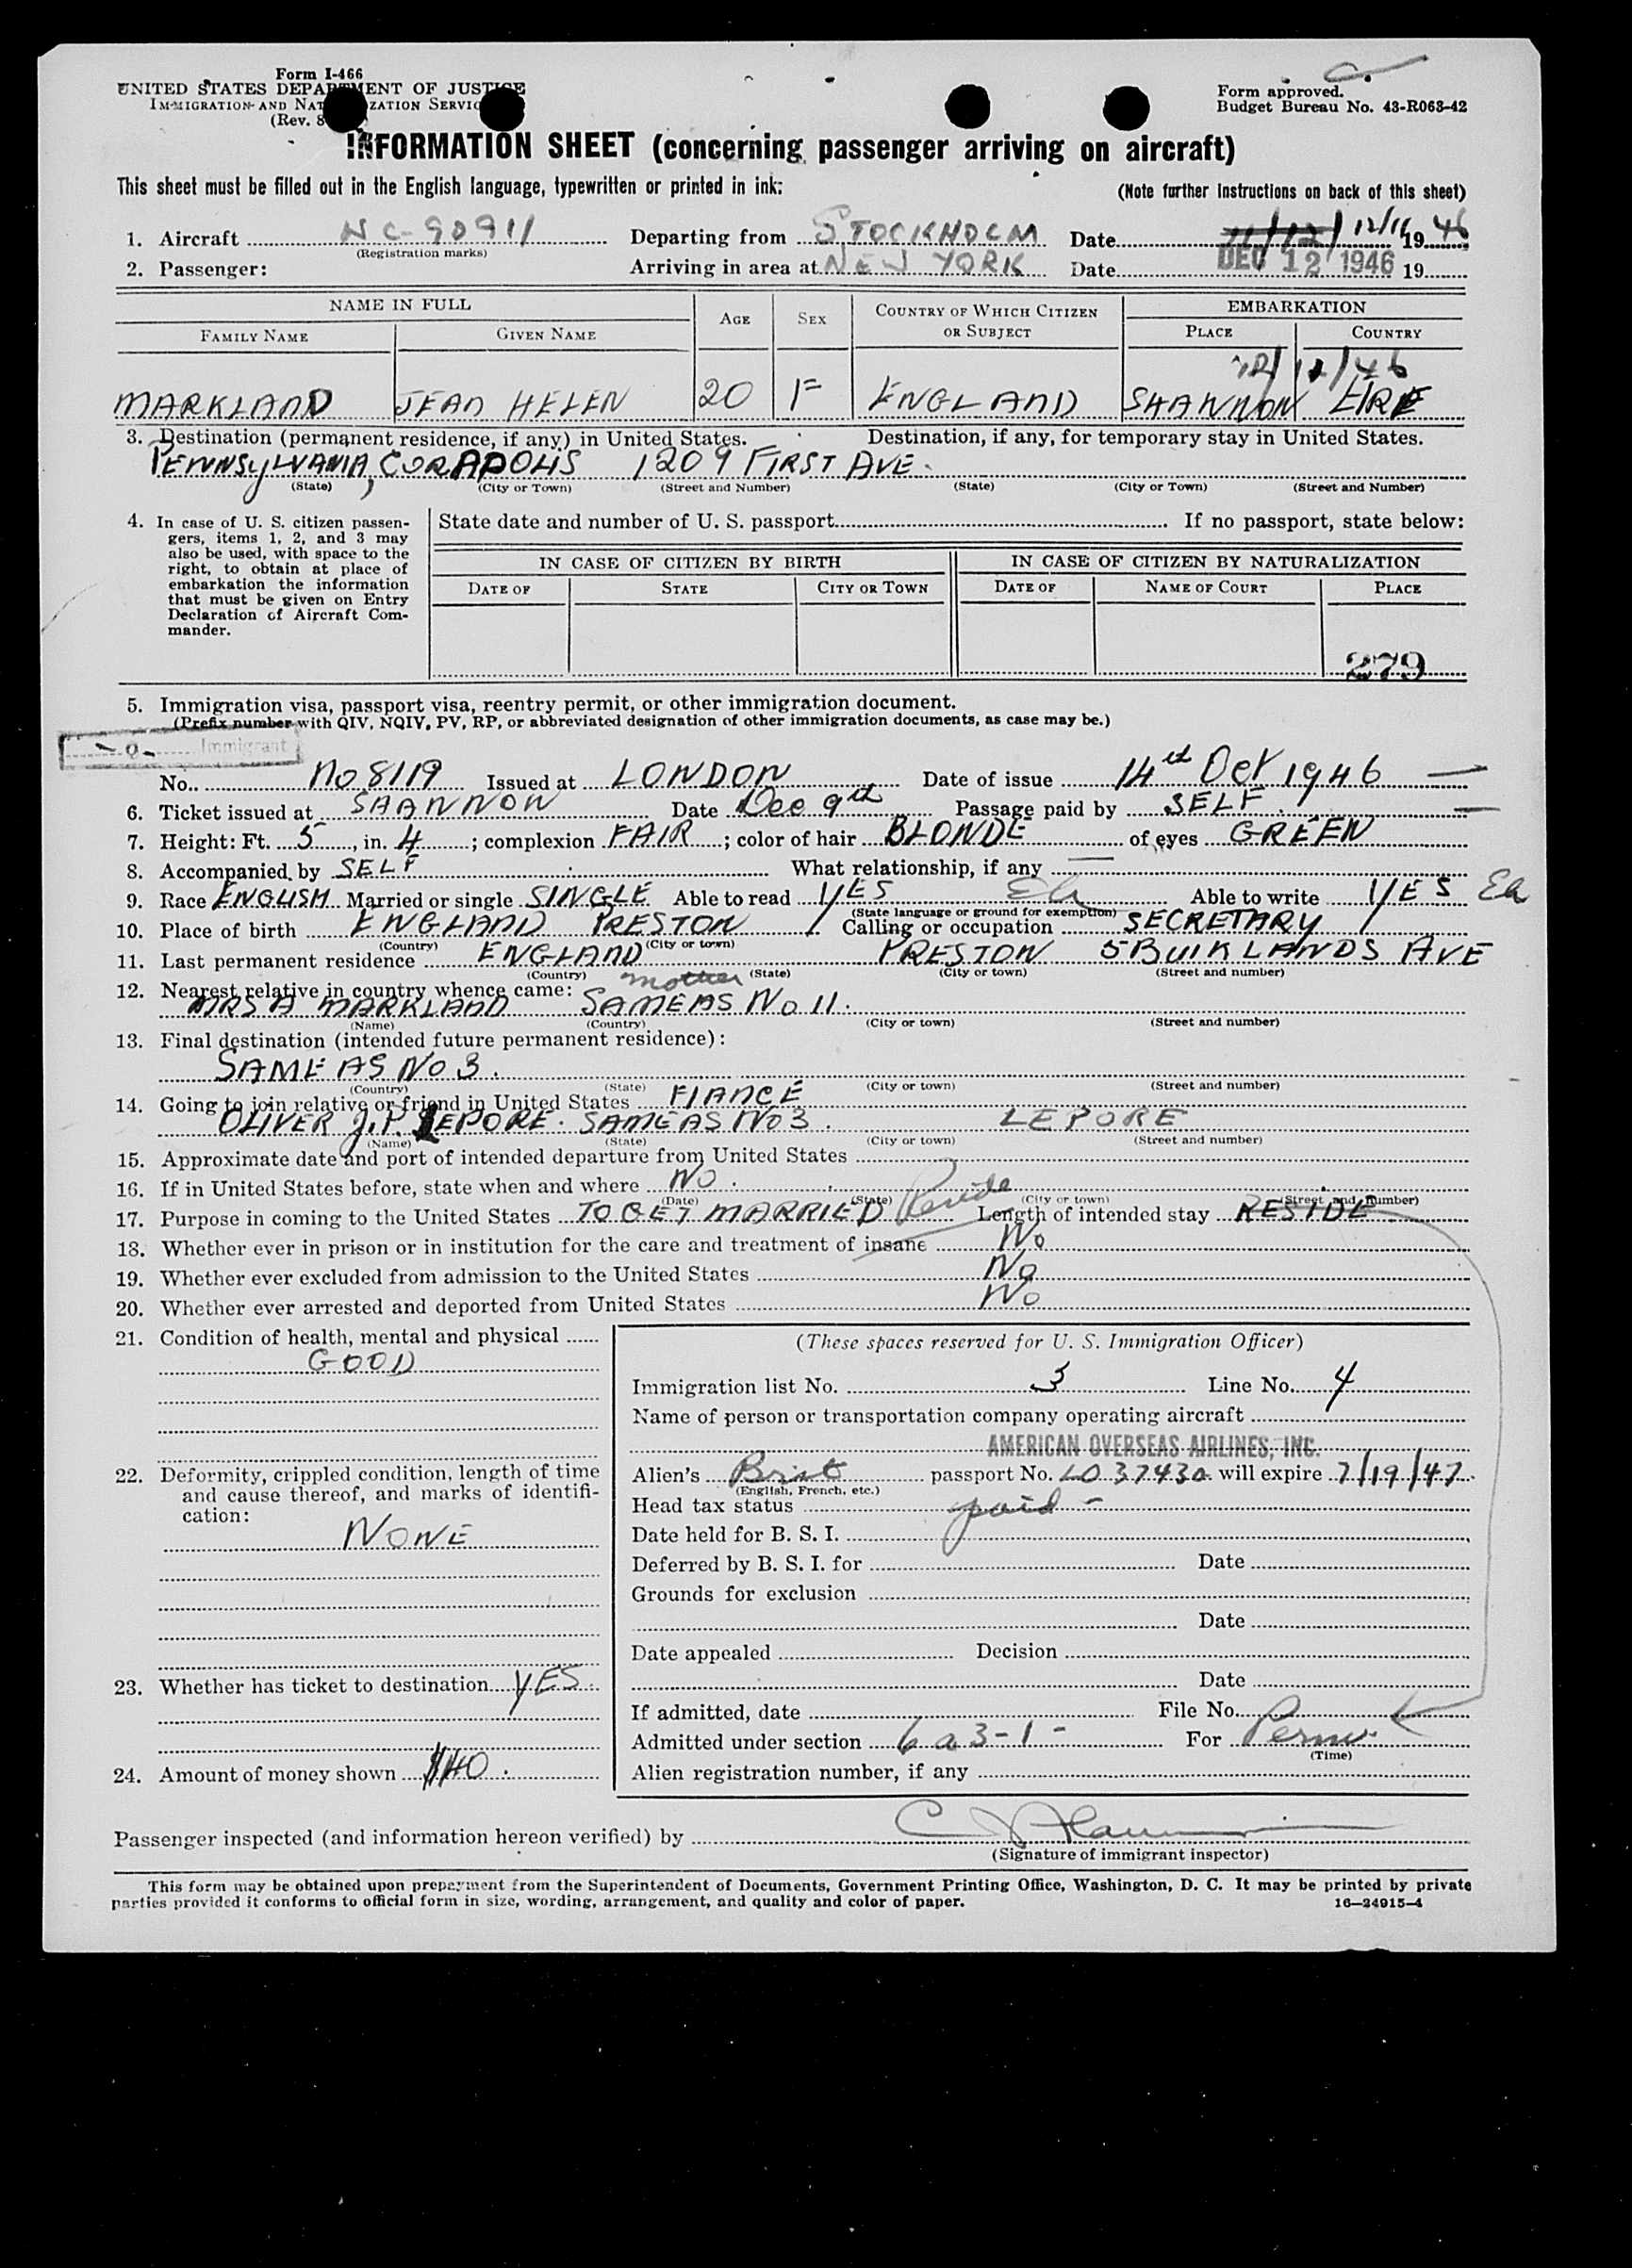 Form I-466
UNITED STATES DEPARTMENT OF JUSTICE
IMMIGRATION AND NATURALIZATION SERVICE
(Rev. 8
Form approved.
Budget Bureau No. 43-R063-42
INFORMATION SHEET (concerning passenger arriving on aircraft)
This sheet must be filled out in the English language, typewritten or printed in ink:
(Note further instructions on back of this sheet)
1. Aircraft NC-90911 Departing from STOCKHOLM Date 11/12/ 12/11 1946
(Registration marks)
2. Passenger: Arriving in area at NEW YORK Date DEC 12 1946 19
NAME IN FULL AGE SEX COUNTRY OF WHICH CITIZEN OR SUBJECT EMBARKATION
FAMILY NAME GIVEN NAME PLACE COUNTRY
12/11/46
MARKLAND JEAN HELEN 20 F ENGLAND SHANNON EIRE
3. Destination (permanent residence, if any) in United States. Destination, if any, for temporary stay in United States.
PENNSYLVANIA, CORAPOLIS 1209 FIRST AVE.
(State) (City or Town) (Street and Number) (State) (City or Town) (Street and Number)
4. In case of U. S. citizen passen-
gers, items 1, 2, and 3 may
also be used, with space to the
right, to obtain at place of
embarkation the information
that must be given on Entry
Declaration of Aircraft Com-
mander.
State date and number of U. S. passport If no passport, state below:
IN CASE OF CITIZEN BY BIRTH IN CASE OF CITIZEN BY NATURALIZATION
DATE OF STATE CITY OR TOWN DATE OF NAME OF COURT PLACE
279
5. Immigration visa, passport visa, reentry permit, or other immigration document.
(Prefix number with QIV, NQIV, PV, RP, or abbreviated designation of other immigration documents, as case may be.)
-Q- Immigrant
No. No 8119 Issued at LONDON Date of issue 14th Oct 1946
6. Ticket issued at SHANNON Date Dec 9th Passage paid by SELF.
7. Height: Ft. 5, in. 4; complexion FAIR; color of hair BLONDE of eyes GREEN
8. Accompanied by SELF What relationship, if any
9. Race ENGLISH Married or single SINGLE Able to read YES Eh Able to write YES Eh
(State language or ground for exemption)
10. Place of birth ENGLAND PRESTON Calling or occupation SECRETARY
(Country) (City or town)
11. Last permanent residence ENGLAND PRESTON 5 BUIKLANDS AVE
(Country) (State) (City or town) (Street and number)
12. Nearest relative in country whence came: mother
MRS A MARKLAND SAME AS No 11.
(Name) (Country) (City or town) (Street and number)
13. Final destination (intended future permanent residence):
SAME AS No 3.
(Country) (State) (City or town) (Street and number)
14. Going to join relative or friend in United States FIANCE
OLIVER J.P. LEPORE. SAME AS No 3. LEPORE
(Name) (State) (City or town) (Street and number)
15. Approximate date and port of intended departure from United States
16. If in United States before, state when and where NO.
(Date) (State) (City or town) (Street and number)
17. Purpose in coming to the United States TO GET MARRIED Reside Length of intended stay RESIDE
18. Whether ever in prison or in institution for the care and treatment of insane No
19. Whether ever excluded from admission to the United States No
20. Whether ever arrested and deported from United States No
21. Condition of health, mental and physical
GOOD
22. Deformity, crippled condition, length of time
and cause thereof, and marks of identifi-
cation:
NONE
23. Whether has ticket to destination YES
24. Amount of money shown $140.
(These spaces reserved for U. S. Immigration Officer)
Immigration list No. 3 Line No. 4
Name of person or transportation company operating aircraft
AMERICAN OVERSEAS AIRLINES, INC.
Alien's Brit passport No. LO 37430 will expire 7/19/47
(English, French, etc.)
Head tax status paid -
Date held for B. S. I.
Deferred by B. S. I. for Date
Grounds for exclusion
Date
Date appealed Decision
Date
If admitted, date File No.
Admitted under section 6a3-1- For Perm.
(Time)
Alien registration number, if any
Passenger inspected (and information hereon verified) by
(Signature of immigrant inspector)
This form may be obtained upon prepayment from the Superintendent of Documents, Government Printing Office, Washington, D. C. It may be printed by private
parties provided it conforms to official form in size, wording, arrangement, and quality and color of paper. 16—24915-4